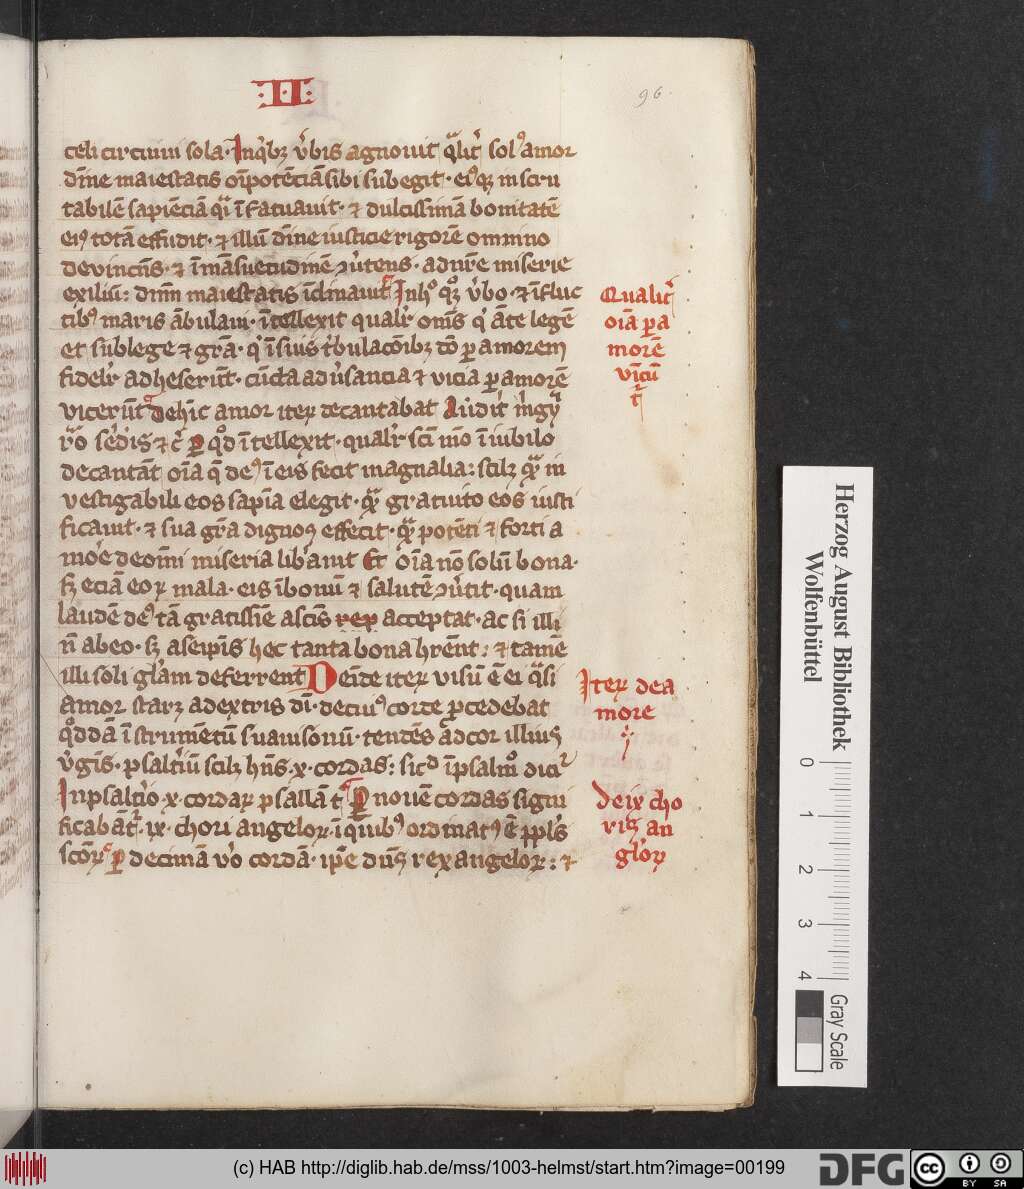 II
96.
celi circuiui sola. Inq̇bꝫ v̓bis agnouit q̄lit̓ solꝰ amor
diīne maiestatis oīpotēciā sibi subegit. eiꝰqꝫ inscru
tabilē sapiēciā q̄i īfatuauit. ⁊ dulcissimā bonitatē
eiꝰ totā effudit. ⁊ illū diīne iusticie rigorē omnino
devincēs. ⁊ ī māsuetudinē ꝯv̓tens. ad nr̄e miserie
exiliū: dn̄m maiestatis īclinauit Inhº qºꝫ v̓bo. ⁊ ī fluc
tibꝰ maris ābulaui. ītellexit qualr̓ om̄s q̇ āte legē
et sub lege ⁊ grā. q̇ ī suis t̓bulacōibꝫ dō ꝑ amorem
fidelr̓ adheserūt. cūcta adv̓sancia ⁊ vicia ꝑ amorē
vicerūt dehīc amor iteꝝ decantabat Audit̓
sed̓is ⁊ c̓ ꝑ qºd ītellexit. qualr̓ sc̄i ī iubilo
decantāt oīa q̄ deꝰ ī eis fecit magnalia: scilꝫ q̄ in
vestigabili eos sapīa elegit. q̄ gratuito eos iusti
ficauit. ⁊ sua grā dignos effecit. q̄ potēti ⁊ forti a
mōe de om̄i miseria lib̓auit Et oīa nō solū bona.
sꝫ eciā eoꝝ mala. eis ī bonū ⁊ salutē ꝯv̓tit. quam
laudē deꝰ tā gratissīe ab sc̄is rex acceptat. ac si illi
n̄ ab eo. sꝫ a seip̄is hec tanta bona hr̄ent: ⁊ tamē
illi soli glām deferrent Deīde iteꝝ visū ē ei q̄si
amor stare a dextris dī. de cuiꝰ corde ꝓcedebat
qºddā īstrumētū suauisonū. tendēs ad cor illius
v̓gīs. psalt̓iū scilꝫ hn̄s .x. cordas: sicᵈ ī psalmº dicit᷑
In psalt̓io x. cordaꝝ psallā t Per nouē cordas signi
ficabāt᷑. ix. chori angeloꝝ. ī quibꝰ ordinatꝰ ē ppl̓s
sc̄oꝝ ꝑ decimā v̓o cordā. ip̄e dn̄s rex angeloꝝ: ⁊
Qualit̓
oīa ꝑ a
morē
vīcū
t᷑
Iteꝝ de a
more
De ix cho
ris an
gl̓oꝝ
Herzog August Bibliothek
Wolfenbüttel
0 1 2 3 4
Gray Scale
(c) HAB http://diglib.hab.de/mss/1003-helmst/start.htm?image=00199
DFG
cc BY SA